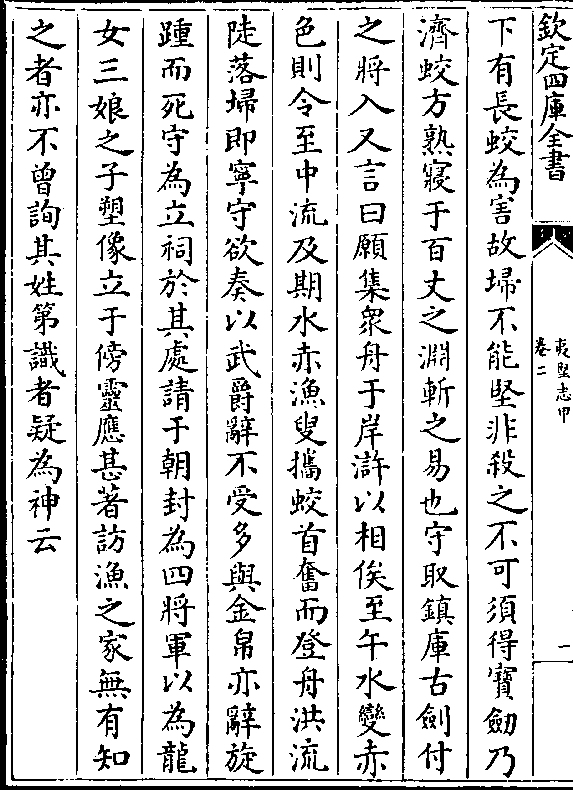 欽定四庫全書
夷堅志甲
卷二
一
下有長蛟為害故埽不能堅非殺之不可須得寳劒乃
濟蛟方熟寢于百丈之淵斬之易也守取鎮庫古劍付
之將入又言曰願集衆舟于岸滸以相俟至午水變赤
色則令至中流及期水赤漁叟攜蛟首奮而登舟洪流
陡落埽即寧守欲奏以武爵辭不受多與金帛亦辭旋
踵而死守為立祠於其處請于朝封為四將軍以為龍
女三娘之子塑像立于傍靈應甚著訪漁之家無有知
之者亦不曾詢其姓第識者疑為神云